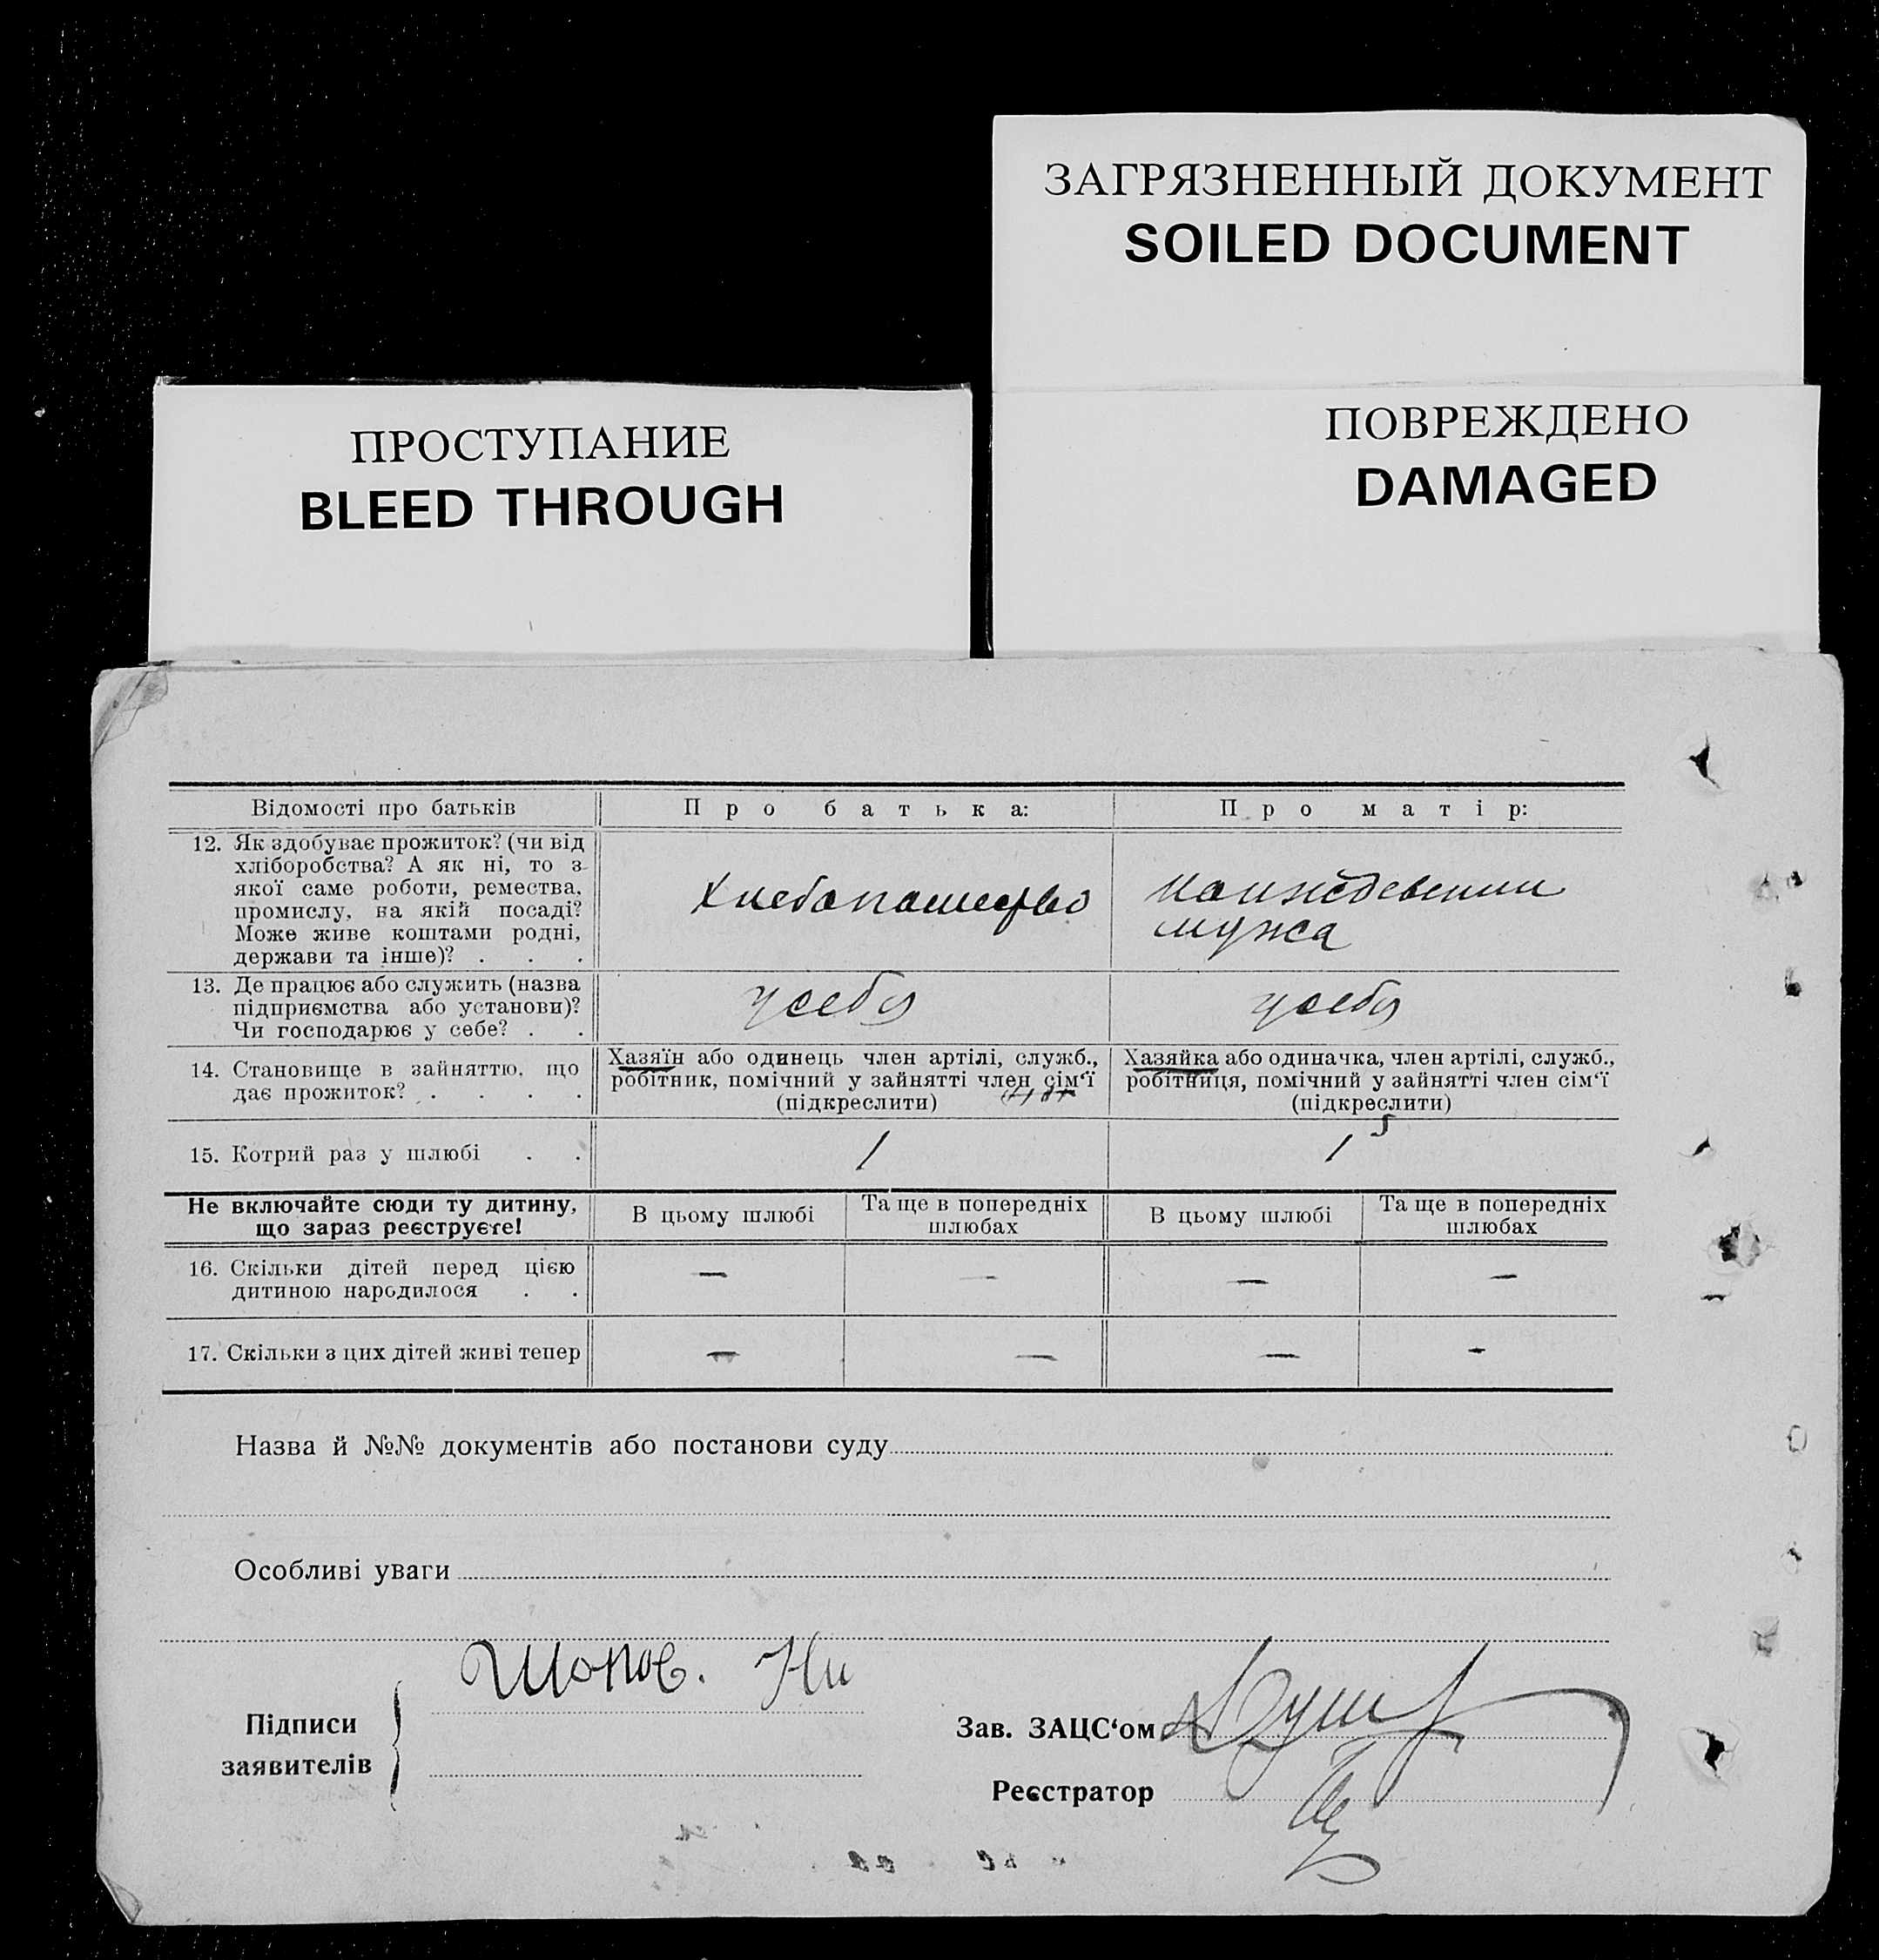 ЗАГРЯЗНЕННЫЙ ДОКУМЕНТ
SOILED DOCUMENT
ПРОСТУПАНИЕ
BLEED THROUGH
ПОВРЕЖДЕНО
DAMAGED
Відомості про батьків
Про батька:
Про матір:
12. Як здобуває прожиток? (чи від
хліборобства? А як ні, то з
якої саме роботи, ремества,
промислу, на якій посаді?
Може живе коштами родні,
держави та інше)? . . .
Хлебопашество
На иждевении
мужа
13. Де працює або служить (назва
підприємства або установи)?
Чи господарює у себе? . .
у себя
у себя
14. Становище в зайняттю, що
дає прожиток? . . . .
Хазяїн або одинець член артілі, служб.,
робітник, помічний у зайнятті член сім'ї
(підкреслити)
Хазяйка або одиначка, член артілі, служб.,
робітниця, помічний у зайнятті член сім'ї
(підкреслити)
15. Котрий раз у шлюбі . .
1
1
Не включайте сюди ту дитину,
що зараз реєструєте!
В цьому шлюбі
Та ще в попередніх
шлюбах
В цьому шлюбі
Та ще в попередніх
шлюбах
16. Скільки дітей перед цією
дитиною народилося . .
— — — —
17. Скільки з цих дітей живі тепер
— — — -
Назва й №№ документів або постанови суду
Особливі уваги
Підписи
заявителів
Зав. ЗАЦС'ом
Реєстратор